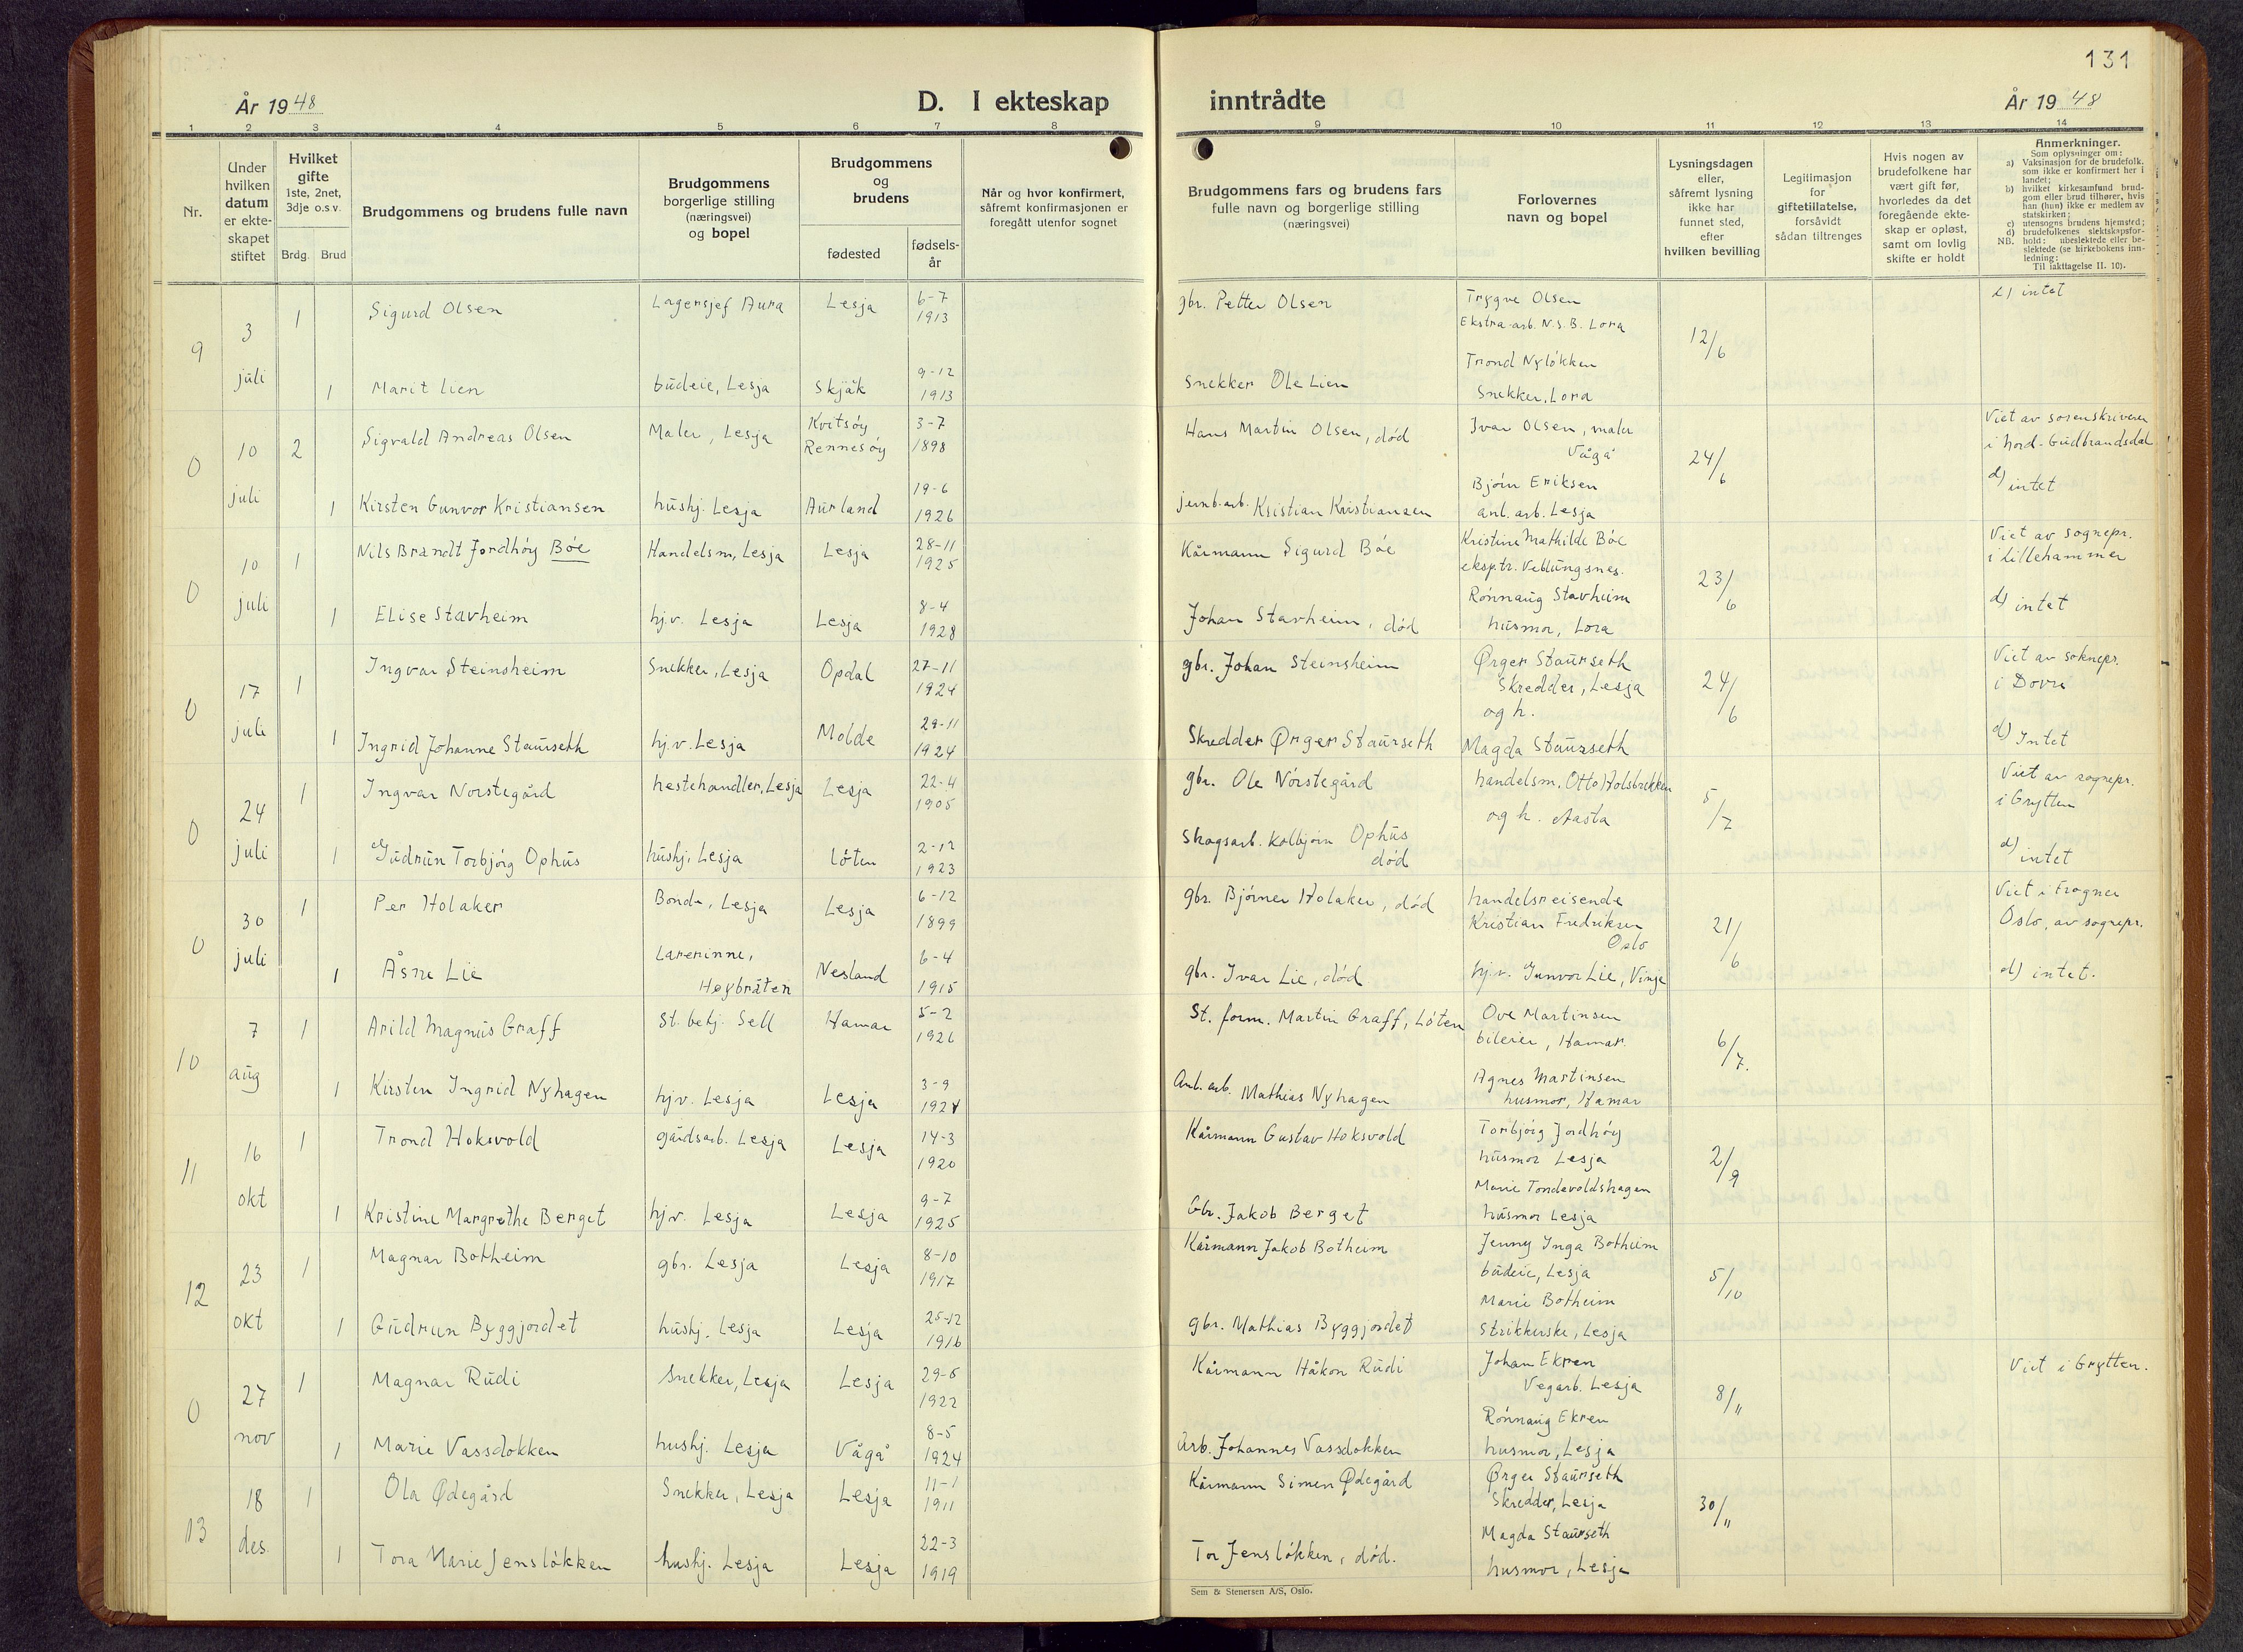 131
År 1948
D. I ekteskap inntrådte
År 1948
1 2 3 4 5 6 7 8 9 10 11 12 13 14
Nr.
Under hvilken datum er ekteskapet stiftet
Hvilket gifte 1ste, 2net, 3dje o.s.v.
Brdg. Brud
Brudgommens og brudens fulle navn
Brudgommens borgerlige stilling (næringsvei) og bopel
Brudgommens og brudens
fødested
fødselsår
Når og hvor konfirmert, såfremt konfirmasjonen er foregått utenfor sognet
Brudgommens fars og brudens fars fulle navn og borgerlige stilling (næringsvei)
Forlovernes navn og bopel
Lysningsdagen eller, såfremt lysning ikke har funnet sted, efter hvilken bevilling
Legitimasjon for giftetillatelse, forsåvidt sådan tiltrenges
Hvis nogen av brudefolkene har vært gift før, hvorledes da det foregående ekteskap er opløst, samt om lovlig skifte er holdt
Anmerkninger.
Som oplysninger om:
a) Vaksinasjon for de brudefolk, som ikke er konfirmert her i landet;
b) hvilket kirkesamfund brudgom eller brud tilhører, hvis han (hun) ikke er medlem av statskirken;
c) utensogns brudens hjemsted;
d) brudefolkenes slektskapsforhold: ubeslektede eller beslektede (se kirkebokens innledning;
NB. Til iakttagelse II. 10).
9 3 juli 1 Sigurd Olsen Lagersjef Aura Lesja 6-7 1913 gbr. Petter Olsen Trygve Olsen Ekstra-arb. N.S.B. Lora 12/6 d) intet
1 Marit Lien budeie, Lesja Skjåk 9-12 1913 Snekker Ole Lien Trond Nyløkken Snekker, Lora
0 10 juli 2 Sigvald Andreas Olsen Maler, Lesja Kvitsøy Rennesøy 3-7 1898 Hans Martin Olsen, død Ivar Olsen, maler Vågå 24/6 Viet av sorenskriveren i Nord-Gudbrandsdal
1 Kirsten Gunvor Kristiansen hushj. Lesja Aurland 19-6 1926 jernb.arb. Kristian Kristiansen Bjørn Eriksen anl. arb. Lesja d) intet
0 10 juli 1 Nils Brandt Jordhøy Bøe Handelsm, Lesja Lesja 28-11 1925 Kårmann Sigurd Bøe Kristine Mathilde Bøe eksp.tr. Veblungsnes. 23/6 Viet av sognepr. i Lillehammer
1 Elise Stavheim hj.v. Lesja Lesja 8-4 1928 Johan Stavheim, død Rønnaug Stavheim husmor, Lora d) intet
0 17 juli 1 Ingvar Steinsheim Snekker, Lesja Opdal 27-11 1924 gbr. Johan Steinsheim Ørger Staurseth Skredder, Lesja og h. 24/6 Viet av soknepr. i Dovre
1 Ingrid Johanne Staurseth hj.v. Lesja Molde 29-11 1924 Skredder Ørger Staurseth Magda Staurseth d) Intet
0 24 juli 1 Ingvar Norstegård hestehandler, Lesja Lesja 22-4 1905 gbr. Ole Nørstegård handelsm. Otto Holsbrekken og h. Aasta 5/7 Viet av sognepr. i Grytten
1 Gudrun Torbjørg Ophus hushj. Lesja Løten 2-12 1923 Skogsarb. Kolbjørn Ophus død d) intet
0 30 juli 1 Per Holaker Bonde, Lesja Lesja 6-12 1899 gbr. Bjørner Holaker, død handelsreisende Kristian Fredriksen Oslo 21/6 Viet i Frogner Oslo, av sognepr.
1 Åsne Lie Lærerinne, Høybråten Nesland 6-4 1915 gbr. Ivar Lie, død hj.v. Gunvor Lie, Vinje d) intet.
10 7 aug 1 Arild Magnus Graff St. betj. Sell Hamar 5-2 1926 St. form. Martin Graff, Løten Ove Martinsen bileier, Hamar. 6/7.
1 Kirsten Ingrid Nyhagen hj.v. Lesja Lesja 3-9 1924 Anl. arb. Mathias Nyhagen Agnes Martinsen husmor, Hamar
11 16 okt 1 Trond Hoksvold gårdsarb. Lesja Lesja 14-3 1920 Kårmann Gustav Hoksvold Torbjørg Jordhøy husmor Lesja 2/9
1 Kristine Margrethe Berget hj.v. Lesja Lesja 9-7 1925 Gbr. Jakob Berget Marie Tondevoldshagen husmor Lesja
12 23 okt 1 Magnar Botheim gbr. Lesja Lesja 8-10 1917 Kårmann Jakob Botheim Jenny Inga Botheim budeie, Lesja 5/10
1 Gudrun Byggjordet hushj. Lesja Lesja 25-12 1916 gbr. Mathias Byggjordet Marie Botheim Strikkerske, Lesja
0 27 nov 1 Magnar Rudi Snekker, Lesja Lesja 29-6 1922 Kårmann Håkon Rudi Johan Ekren Vegarb. Lesja 8/11 Viet i Grytten.
1 Marie Vassdokken hushj. Lesja Vågå 8-5 1924 Arb. Johannes Vassdokken Rønnaug Ekren husmor, Lesja
13 18 des. 1 Ola Ødegård Snekker, Lesja Lesja 11-1 1911 Kårmann Simen Ødegård Ørger Staurseth Skredder, Lesja 30/11
1 Tora Marie Jensløkken hushj. Lesja Lesja 22-3 1919 Tor Jensløkken, død. Magda Staurseth husmor, Lesja
Sem & Stenersen A/S, Oslo.